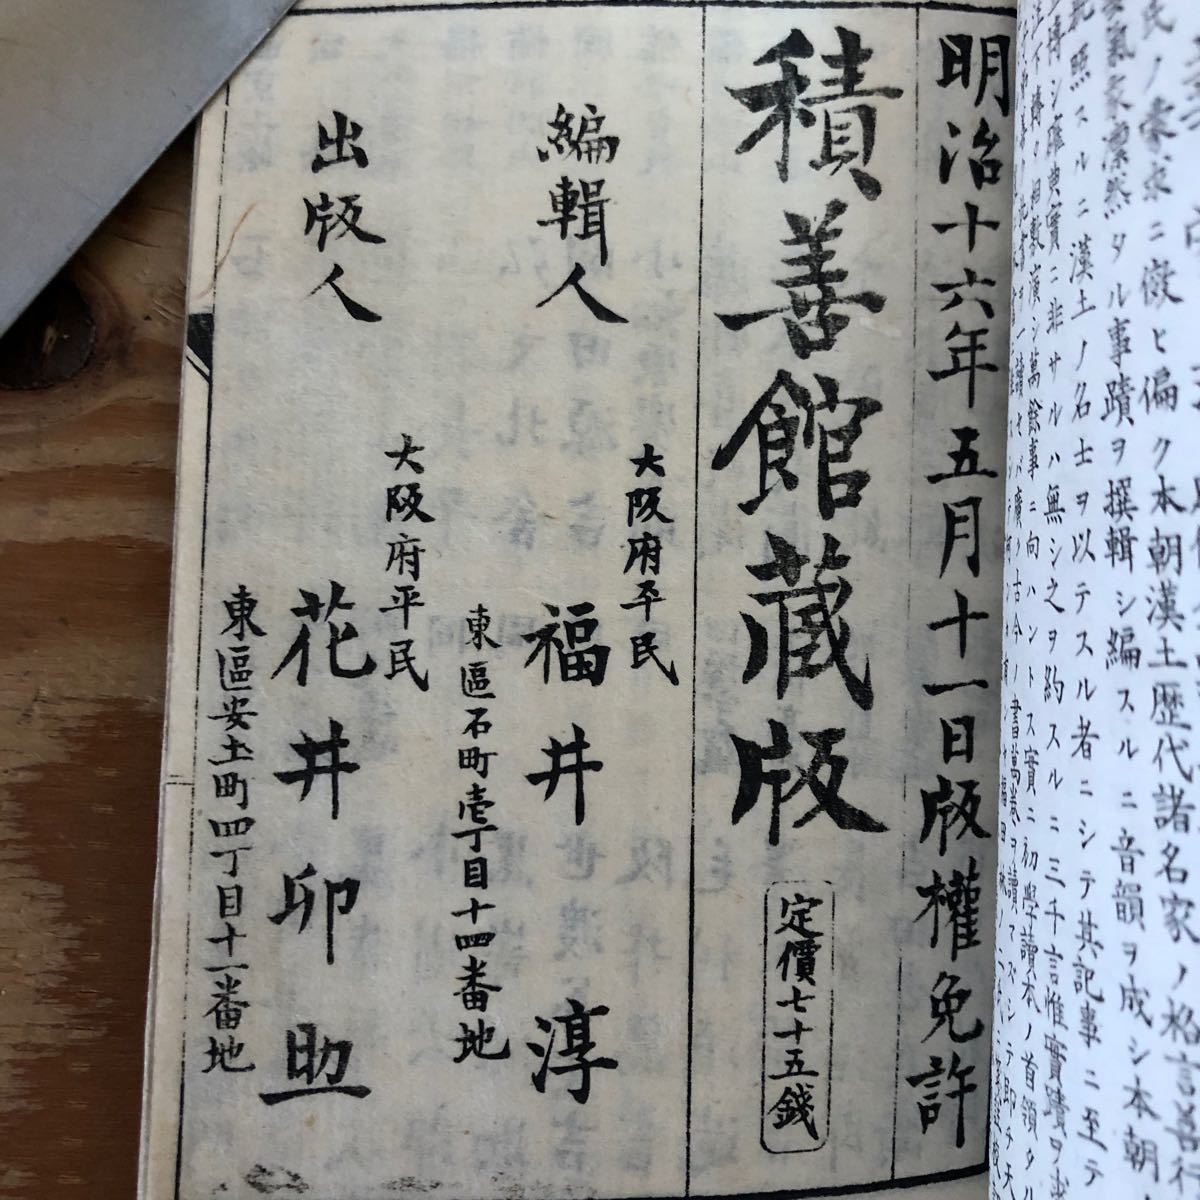 民ノ蒙求ニ倣ヒ偏ク本朝漢土歴代諸名家ノ格言善行
タル事蹟ヲ撰輯シ編スルニ音韻ヲ成シ本朝
照スルニ漢土ノ名士ヲ以テスル者ニシテ其記事ニ至テ
非サルハ無シ之ヲ約スルニ三千言惟實蹟ヲ
萬餘事ニ向ハントス實ニ初學讀本ノ首領タル
明治十六年五月十一日版權免許
積善館藏版
定價七十五錢
編輯人
大阪府平民
福井淳
東區石町壱丁目十四番地
出版人
大阪府平民
花井卯助
東區安土町四丁目十一番地